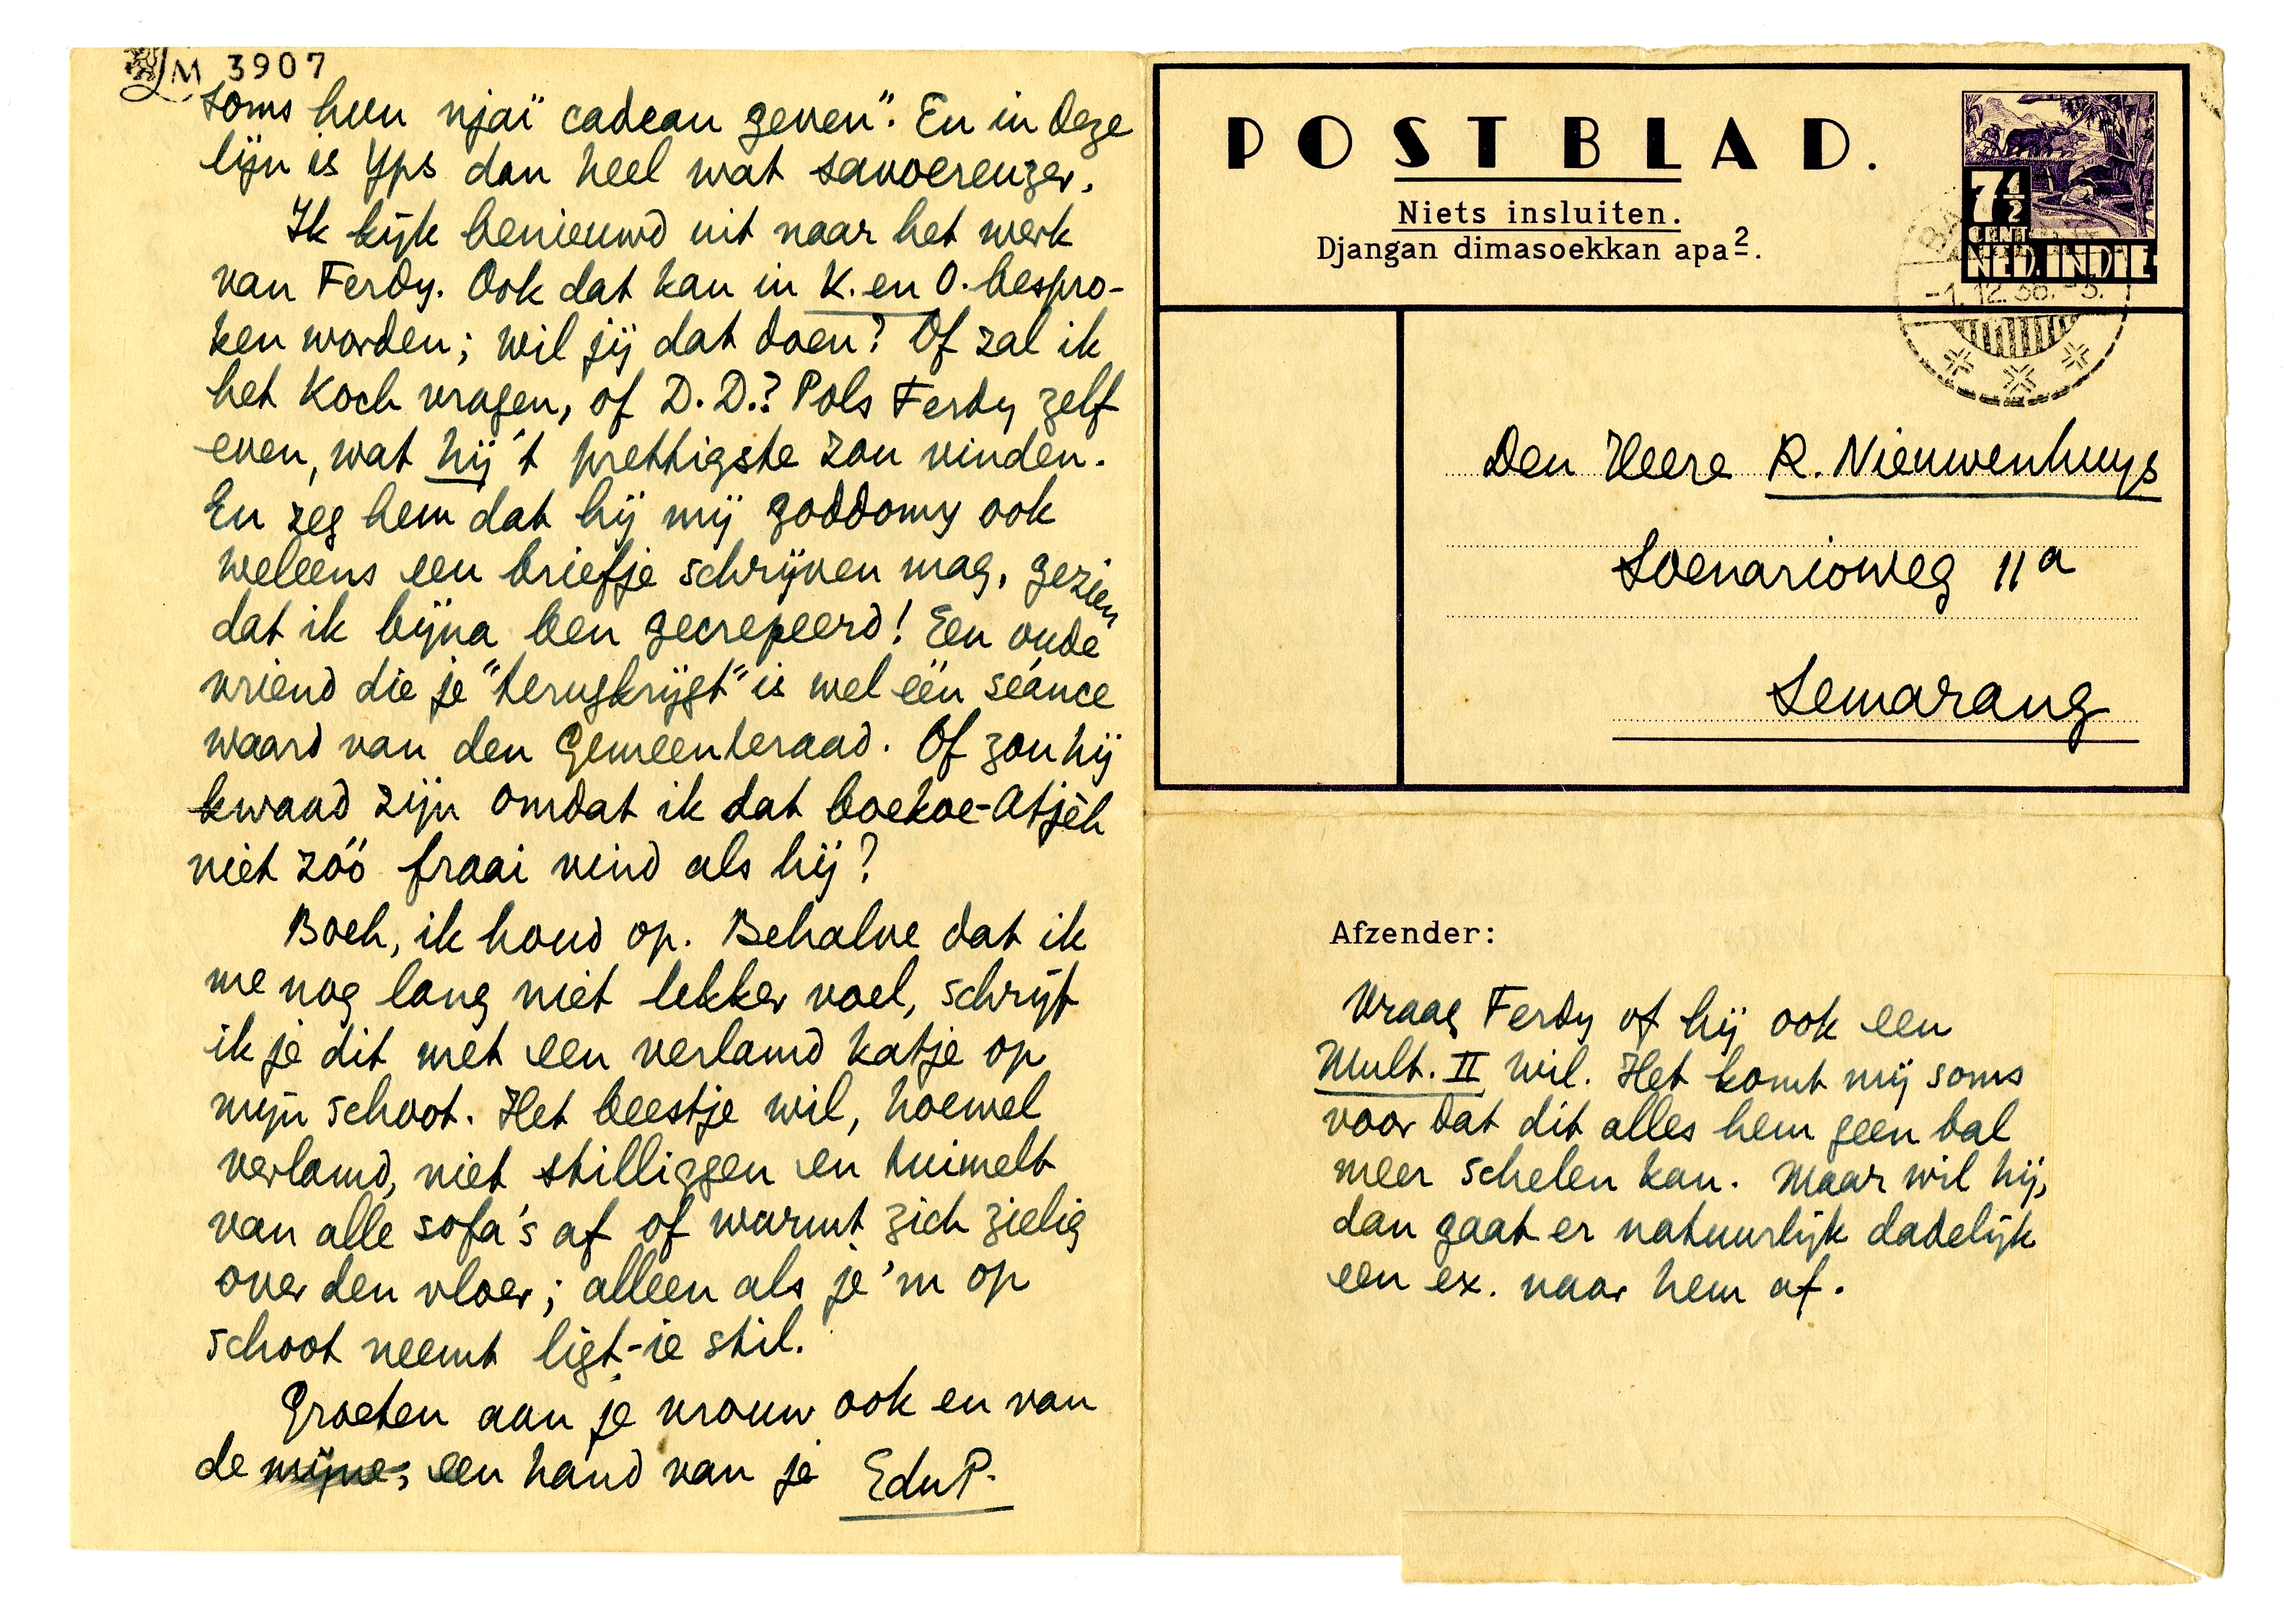 LM 3907
soms hun njaï cadeau geven". En in deze
lijn is Yps dan heel wat savoereuzer.
Ik kijk benieuwd uit naar het werk
van Ferdy. Ook dat kan in K. en O. bespro-
ken worden; wil jij dat doen? Of zal ik
het Koch vragen, of D.D.? Pols Ferdy zelf
even, wat hij 't prettigste zou vinden.
En zeg hem dat hij mij goddomy ook
weleens een briefje schrijven mag, gezien
dat ik bijna ben gecrepeerd! Een oude
vriend die je "terugkrijgt" is wel één séance
waard van den Gemeenteraad. Of zou hij
kwaad zijn omdat ik dat boekoe-Atjèh
niet zóó fraai vind als hij?
Boeh, ik houd op. Behalve dat ik
me nog lang niet lekker voel, schrijf
ik je dit met een verlamd katje op
mijn schoot. Het beestje wil, hoewel
verlamd, niet stilliggen en tuimelt
van alle sofa's af of wurmt zich zielig
over den vloer; alleen als je 'm op
schoot neemt ligt-ie stil.
Groeten aan je vrouw ook en van
de mijne; een hand van je EduP.
POSTBLAD.
Niets insluiten.
Djangan dimasoekkan apa2.
7½
CENT
NED. INDIE
-1.12.38.-3.
Den Heere R. Nieuwenhuys
Soenarioweg 11a
Semarang
Afzender:
Vraag Ferdy of hij ook een
Mult. II wil. Het komt mij soms
voor dat dit alles hem geen bal
meer schelen kan. Maar wil hij,
dan gaat er natuurlijk dadelijk
een ex. naar hem af.